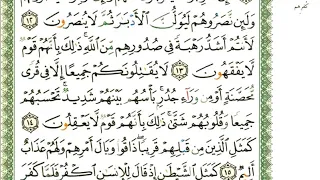 وَلَئِن نَّصَرُوهُمْ لَيُوَلُّنَّ ٱلْأَدْبَٰرَ ثُمَّ لَا يُنصَرُونَ ١٢
لَأَنتُمْ أَشَدُّ رَهْبَةً فِى صُدُورِهِم مِّنَ ٱللَّهِ ذَٰلِكَ بِأَنَّهُمْ قَوْمٌ
لَّا يَفْقَهُونَ ١٣ لَا يُقَٰتِلُونَكُمْ جَمِيعًا إِلَّا فِى قُرًى
مُّحَصَّنَةٍ أَوْ مِن وَرَآءِ جُدُرٍۭ بَأْسُهُم بَيْنَهُمْ شَدِيدٌ تَحْسَبُهُمْ
جَمِيعًا وَقُلُوبُهُمْ شَتَّىٰ ذَٰلِكَ بِأَنَّهُمْ قَوْمٌ لَّا يَعْقِلُونَ ١٤
كَمَثَلِ ٱلَّذِينَ مِن قَبْلِهِمْ قَرِيبًا ذَاقُوا۟ وَبَالَ أَمْرِهِمْ وَلَهُمْ عَذَابٌ
أَلِيمٌ ١٥ كَمَثَلِ ٱلشَّيْطَٰنِ إِذْ قَالَ لِلْإِنسَٰنِ ٱكْفُرْ فَلَمَّا كَفَرَ